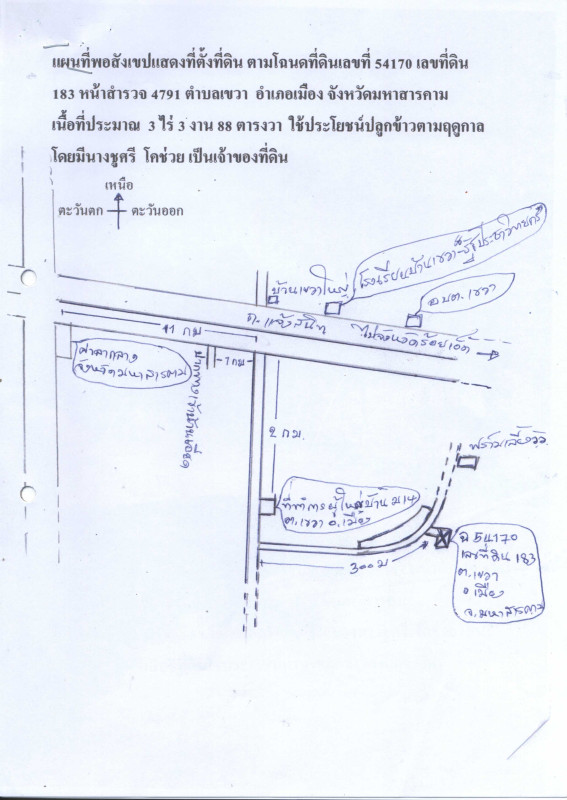 แผนที่พอสังเขปแสดงที่ตั้งที่ดิน ตามโฉนดที่ดินเลขที่ 54170 เลขที่ดิน
183 หน้าสำรวจ 4791 ตำบลเขวา อำเภอเมือง จังหวัดมหาสารคาม
เนื้อที่ประมาณ 3 ไร่ 3 งาน 88 ตารงวา ใช้ประโยชน์ปลูกข้าวตามฤดูกาล
โดยมีนางชูศรี โคช่วย เป็นเจ้าของที่ดิน
เหนือ
ตะวันตก ตะวันออก
บ้านเขวาใหญ่
โรงเรียนบ้านเขวา
อบต. เขวา
ถ. แจ้งสนิท
ไปจังหวัดร้อยเอ็ด
11 กม
ศาลากลาง
จังหวัดมหาสารคาม
1 กม
2 กม.
ฟาร์มเลี้ยงวัว
ที่ทำการผู้ใหญ่บ้าน ม.14
ต.เขวา อ.เมือง
300 ม
ฉ 54170
เลขที่ดิน 183
ต.เขวา
อ เมือง
จ.มหาสารคาม